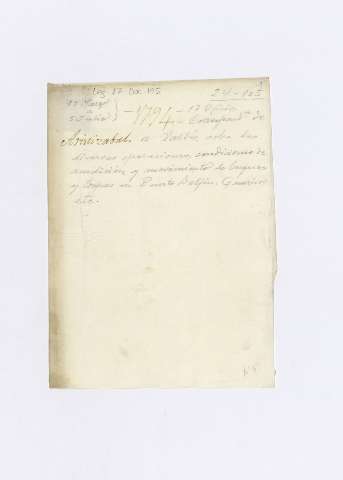 Leg. 87 Doc. 195
24-105
17 Mayo
a
5 Julio
-1794- 17 Oficios
- Correspond.ª de
Aristizabal a Valdés sobre las
diversas operaciones, condiciones de
rendición y movimiento de buques
y tropas en Puerto Delfín, Guarico
etc.